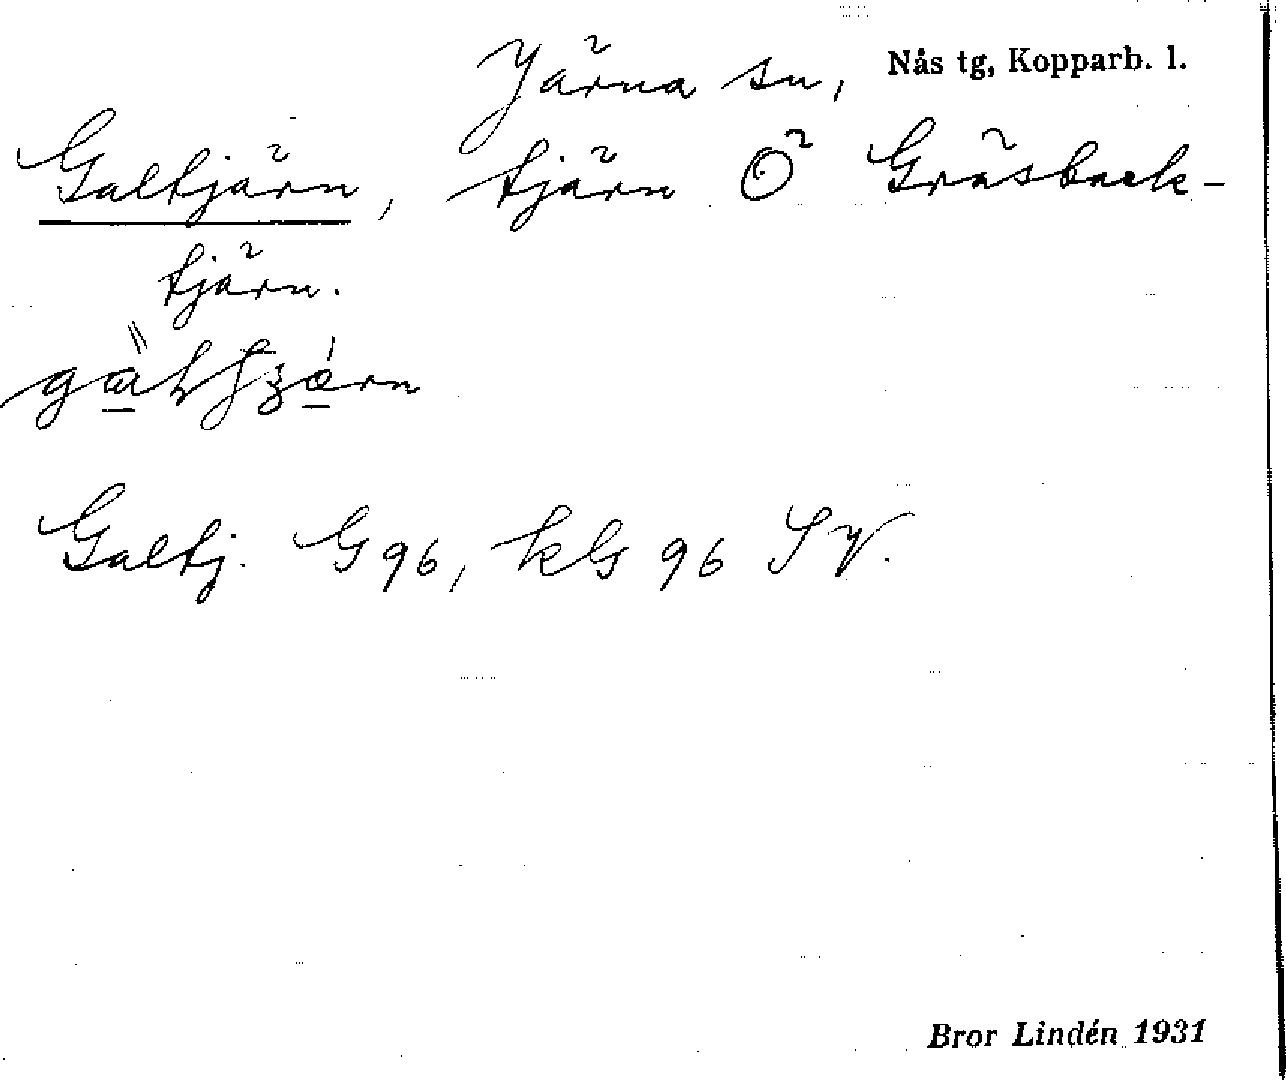 Järna sn, Nås tg, Kopparb. l.
Galtjärn, tjärn Ö Gräsback-
tjärn.
Galtj. G 96, kG 96 SV.
Bror Lindén 1931